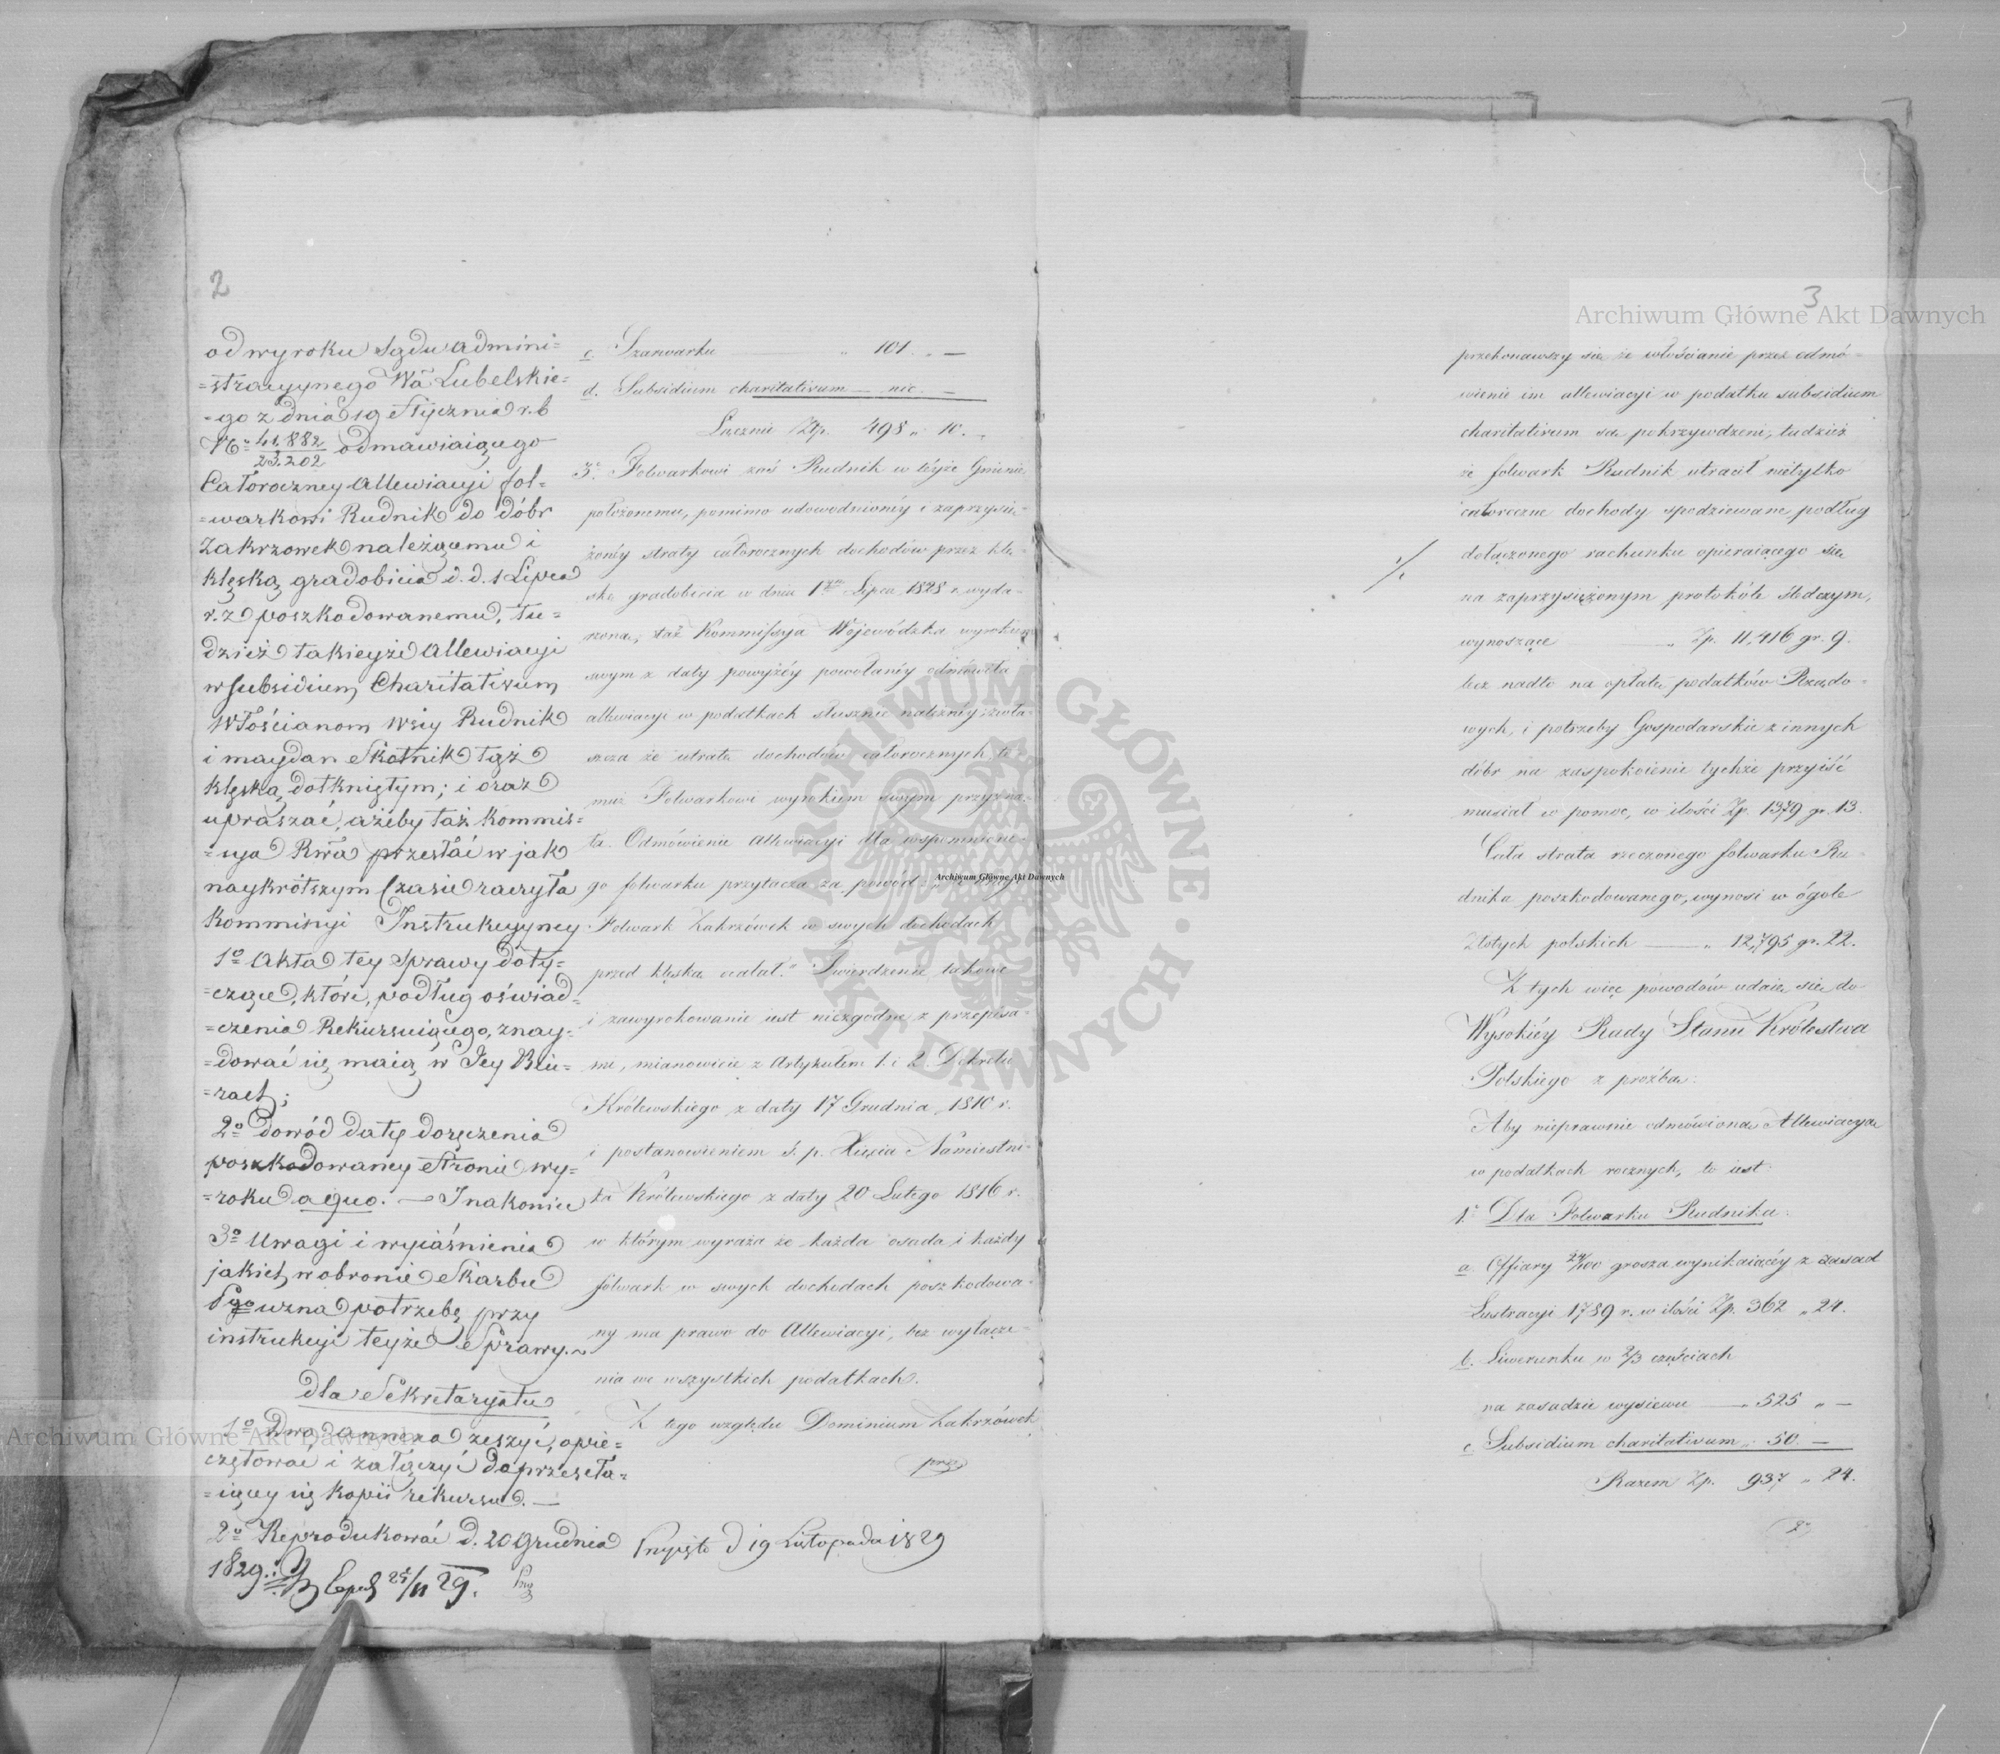 2
od wyroku Sądu Admini=
=stracyynego Wa Lubelskie=
=go z dnia 19 Stycznia r. b
No 41.882/23.202 odmawiaiącego
Całoroczney Allewiacyi fol=
=warkowi Rudnik do dóbr
Zakrzowek należącemu i
klęską gradobicia d. d. 1 Lipca
r. z poszkodowanemu, tu=
dzież takieyże Allewiacyi
w Subsidium Charitativum
Włościanom wsiy Rudnik
i maydan Skotnik tąż
klęską dotkniętym; i oraz
upraszać, ażeby taż Kommis=
=sya Rwa przesłać w jak
naykrótszym Czasie raczyła
Kommissyi Instrukcyyney
1o Akta tey Sprawy doty=
=czące, które, podług oświad=
=czenia Rekursuiącego, znay=
=dować się maią w Jey Biu=
=rach;
2o Dowód daty doręczenia
poszkodowaney Stronie wy=
=roku a quo. — I nakoniec
3o Uwagi i wyiaśnienia
jakich w obronie Skarbu
Pgo uzna potrzebę przy
instrukcyi teyże Sprawy.
dla Sekretaryatu
1o Dwa annexa zeszyć, opie=
czętować i załączyć do przesyła=
=iącey się kopii rekursu. —
2o Reprodukować d. 20 Grudnia
1829.
25/11 29.
c. Szarwarku — „ 101. „ —
d. Subsidium charitativum — nic —
Łącznie Złp. 498 „ 10.
3o Folwarkowi zaś Rudnik w téyże Gminie
położonemu, pomimo udowodnionéy i zaprzysię-
żonéy straty całorocznych dochodów przez klę-
skę gradobicia w dniu 1ym Lipca 1828 r. wyda-
rzoną, taż Kommissya Wojewódzka wyrokiem
swym z daty powyżéy powołanéy odmówiła
allewiacyi w podatkach słusznie należnéy, zwła-
szcza że utratę dochodów całorocznych te-
muż Folwarkowi wyrokiem swym przyzna-
ła. Odmówienie Allewiacyi dla wspomnione-
go folwarku przytacza za powód
Folwark Zakrzówek w swych dochodach
przed klęską ocalał." Twierdzenie takowe
i zawyrokowanie iest niezgodne z przepisa-
mi, mianowicie z Artykułem 1. i 2. Dekretu
Królewskiego z daty 17 Grudnia 1810 r.
i postanowieniem ś. p. Xięcia Namiestni-
ka Królewskiego z daty 20 Lutego 1816 r.
w którym wyraża że każda osada i każdy
folwark w swych dochodach poszkodowa-
ny ma prawo do Allewiacyi, bez wyłącze-
nia we wszystkich podatkach.
Z tego względu Dominium Zakrzówek
prze
Przyięto d 19 Listopada 1829
3
przekonawszy się, że włościanie przez odmó-
wienie im allewiacyi w podatku subsidium
charitativum są pokrzywdzeni, tudzież
że folwark Rudnik utracił nietylko
całoroczne dochody spodziewane, podług
dołączonego rachunku opieraiącego się
na zaprzysiężonym protokóle śledczym,
wynoszące — „ Zp. 11,416 gr. 9.
lecz nadto na opłatę podatków Rządo-
wych, i potrzeby Gospodarskie z innych
dóbr na zaspokoienie tychże przyiść
musiał w pomoc, w ilości Zp. 1379 gr. 13.
Cała strata rzeczonego folwarku Ru-
dnika poszkodowanego, wynosi w ógole
złotych polskich — „ 12,795 gr. 22.
Z tych więc powodów udaie się do
Wysokiéy Rady Stanu Królestwa
Polskiego z proźbą:
Aby nieprawnie odmówiona Allewiacya
w podatkach rocznych, to iest:
1o Dla Folwarku Rudnika.
a. Offiary 24/100 grosza wynikaiącéy z zasad
Lustracyi 1789 r. w ilości Zp. 362 „ 24.
b. Liwerunku w 2/3 częściach
na zasadzie wysiewu — „ 525 „ —
c. Subsidium charitativum „ 50. —
Razem Zp. 937 „ 24.
2o
Archiwum Główne Akt Dawnych
Archiwum Główne Akt Dawnych
Archiwum Główne Akt Dawnych
ARCHIWUM GŁÓWNE · AKT DAWNYCH ·